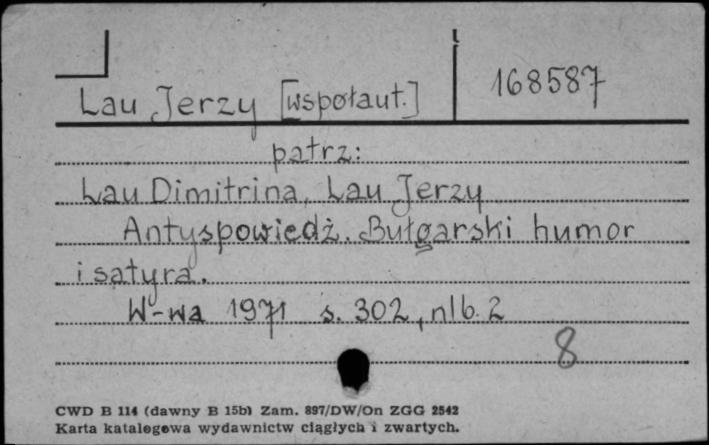 Lau Jerzy [współaut.]
168587
patrz:
Lau Dimitrina, Lau Jerzy
Antyspowiedź. Bułgarski humor
i satyra.
W-wa 1971 s. 302, nlb. 2
8
CWD B 114 (dawny B 15b) Zam. 897/DW/On ZGG 2542
Karta katalogowa wydawnictw ciągłych i zwartych.